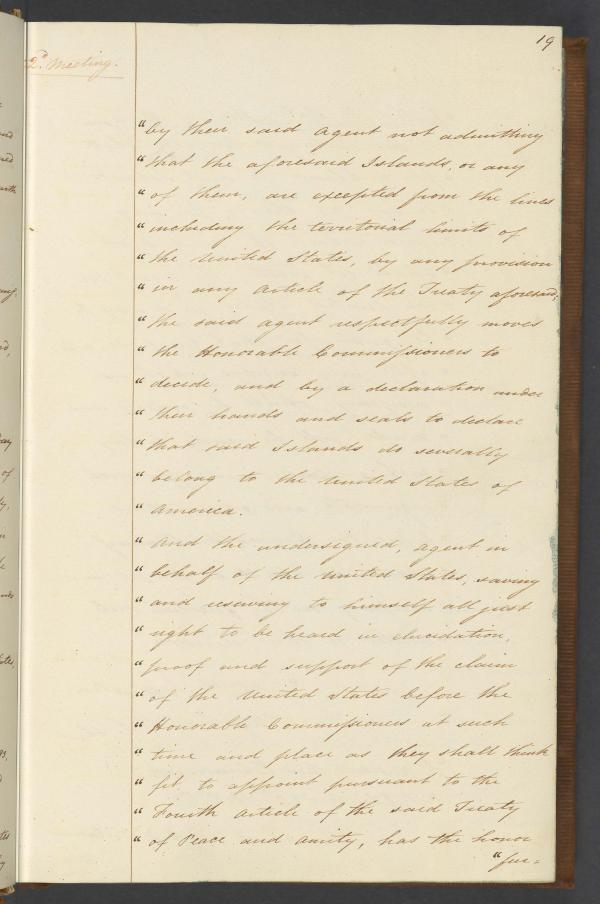 19
2d. Meeting.
"by their said agent not admitting
"that the aforesaid Islands, or any
"of them, are excepted from the lines
"including the territorial limits of
"the United States, by any provision
"in any Article of the Treaty aforesaid;
"the said agent respectfully moves
"the Honorable Commissioners to
"decide, and by a declaration under
"their hands and seals to declare
"that said Islands do severally
"belong to the United States of
"America.
"And the undersigned, agent in
"behalf of the United States, saving
"and reserving to himself all just
"right to be heard in elucidation,
"proof and support of the claim
"of the United States before the
"Honorable Commissioners at such
"time and place as they shall think
"fit to appoint pursuant to the
"Fourth Article of the said Treaty
"of Peace and Amity, has the honor
"fur=